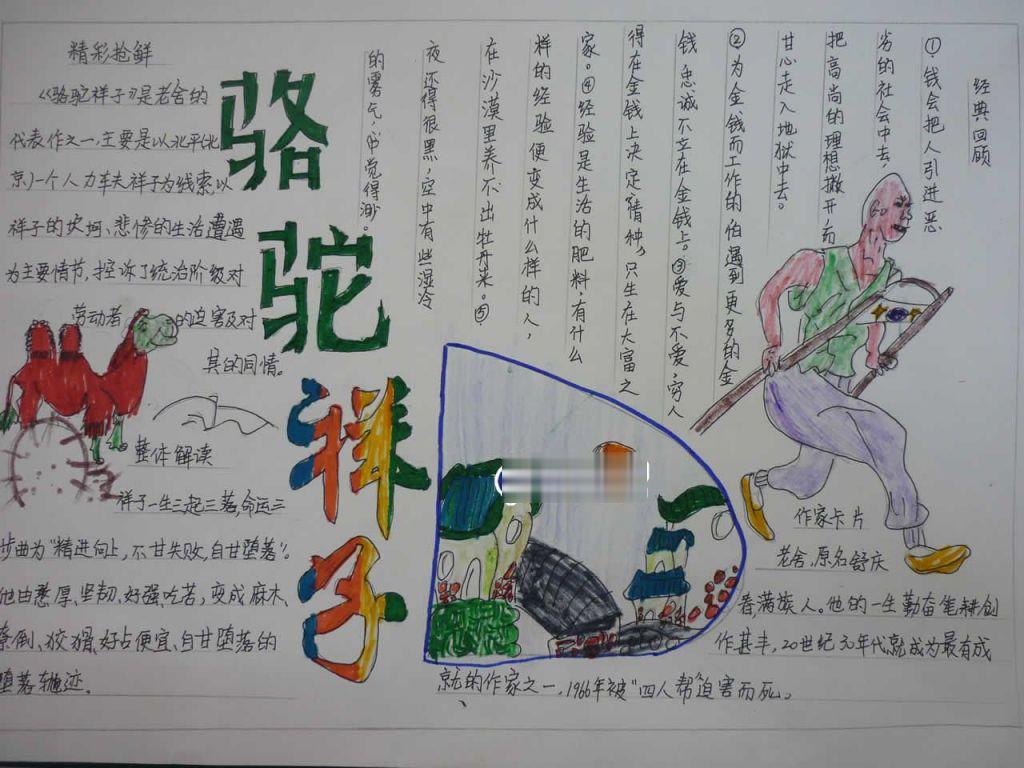 精彩抢鲜
《骆驼祥子》是老舍的
代表作之一,主要是以北平(北
京)一个人力车夫祥子为线索,以
祥子的坎坷、悲惨的生活遭遇
为主要情节,控诉了统治阶级对
劳动者的迫害及对
其的同情。
整体解读
祥子一生三起三落,命运三
步曲为"精进向上,不甘失败,自甘堕落"。
他由憨厚、坚韧、好强、吃苦,变成麻木、
潦倒、狡猾、好占便宜、自甘堕落的
堕落轨迹。
骆驼祥子
经典回顾
①钱会把人引进恶
劣的社会中去,
把高尚的理想撇开,而
甘心走入地狱中去。
②为金钱而工作的,怕遇到更多的金
钱,忠诚不立在金钱上。③爱与不爱,穷人
得在金钱上决定,情种,只生在大富之
家。④经验是生活的肥料,有什么
样的经验便变成什么样的人,
在沙漠里养不出牡丹来。⑤
夜还得很黑,空中有些湿冷
的雾气,心中觉得渺。
作家卡片
老舍,原名舒庆
春,满族人。他的一生勤奋笔耕,创
作甚丰,20世纪30年代,就成为最有成
就的作家之一,1966年被"四人帮"迫害而死。